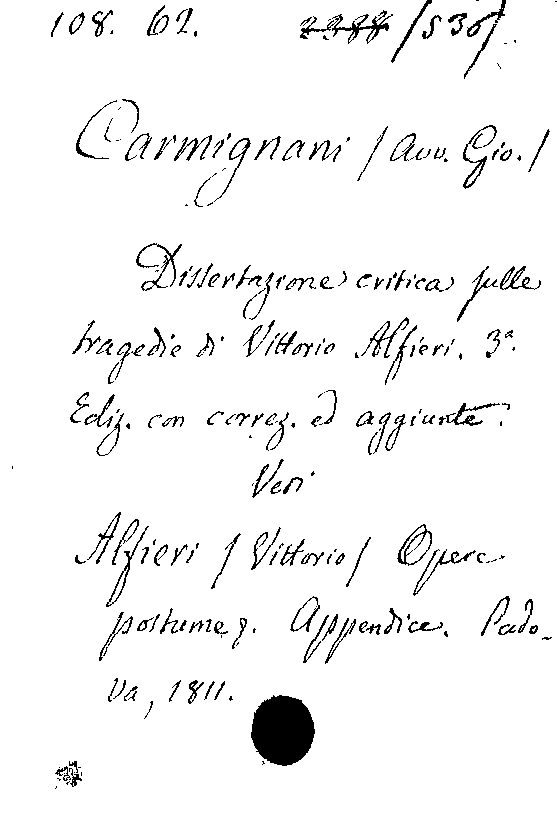 108. 62. 2388 /536/
Carmignani /Avv. Gio./
Dissertazione critica sulle
tragedie di Vittorio Alfieri. 3ª.
Ediz. con correz. ed aggiunte.
Vedi
Alfieri /Vittorio/ Opere
postume. Appendice. Pado-
va, 1811.